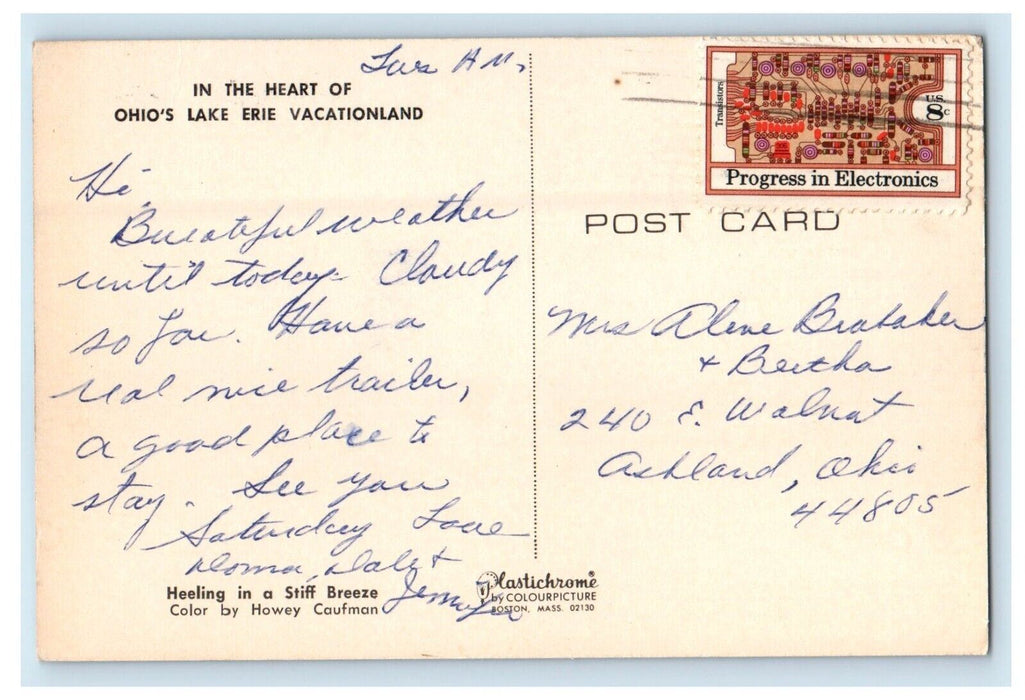 Tues A.M.
IN THE HEART OF
OHIO'S LAKE ERIE VACATIONLAND
Hi,
Bueatiful weather
until today. Cloudy
so far. Have a
real nice trailer,
a good place to
stay. See you
Saturday Love
Norma, Dale &
Jennifer
Heeling in a Stiff Breeze
Color by Howey Caufman
Plastichrome®
by COLOURPICTURE
BOSTON, MASS. 02130
Transistors
U.S.
8c
Progress in Electronics
POST CARD
Mrs Alene Brubaker
+ Bertha
240 E. Walnut
Ashland, Ohio
44805